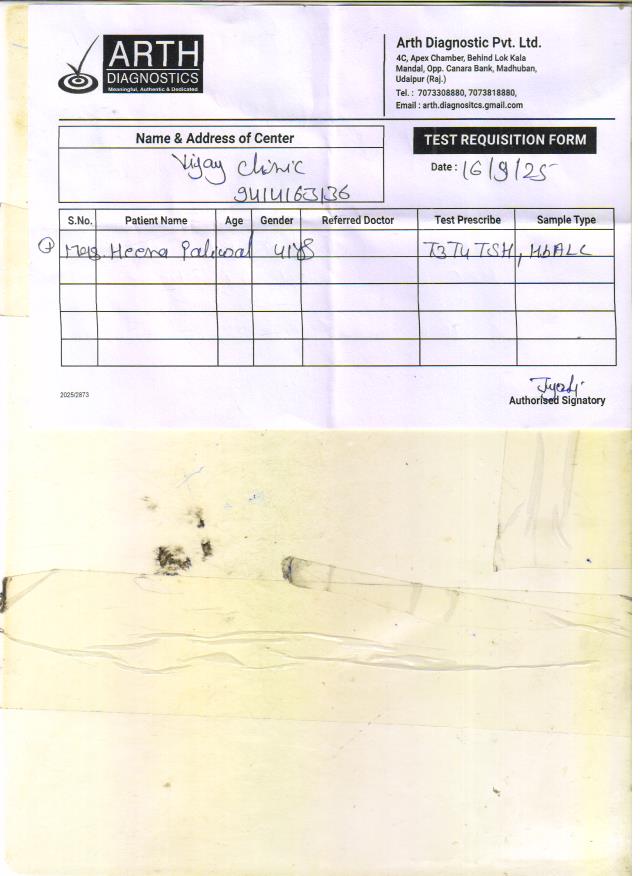 ARTH
DIAGNOSTICS
Meaningful, Authentic & Dedicated
Arth Diagnostic Pvt. Ltd.
4C, Apex Chamber, Behind Lok Kala
Mandal, Opp. Canara Bank, Madhuban,
Udaipur (Raj.)
Tel. : 7073308880, 7073818880,
Email : arth.diagnositcs.gmail.com
Name & Address of Center
Vijay Clinic
9414163136
TEST REQUISITION FORM
Date : 16/9/25
S.No. Patient Name Age Gender Referred Doctor Test Prescribe Sample Type
1 Heena Paliwal T3T4TSH, HbA1C
2025/2873
Jyoti
Authorised Signatory